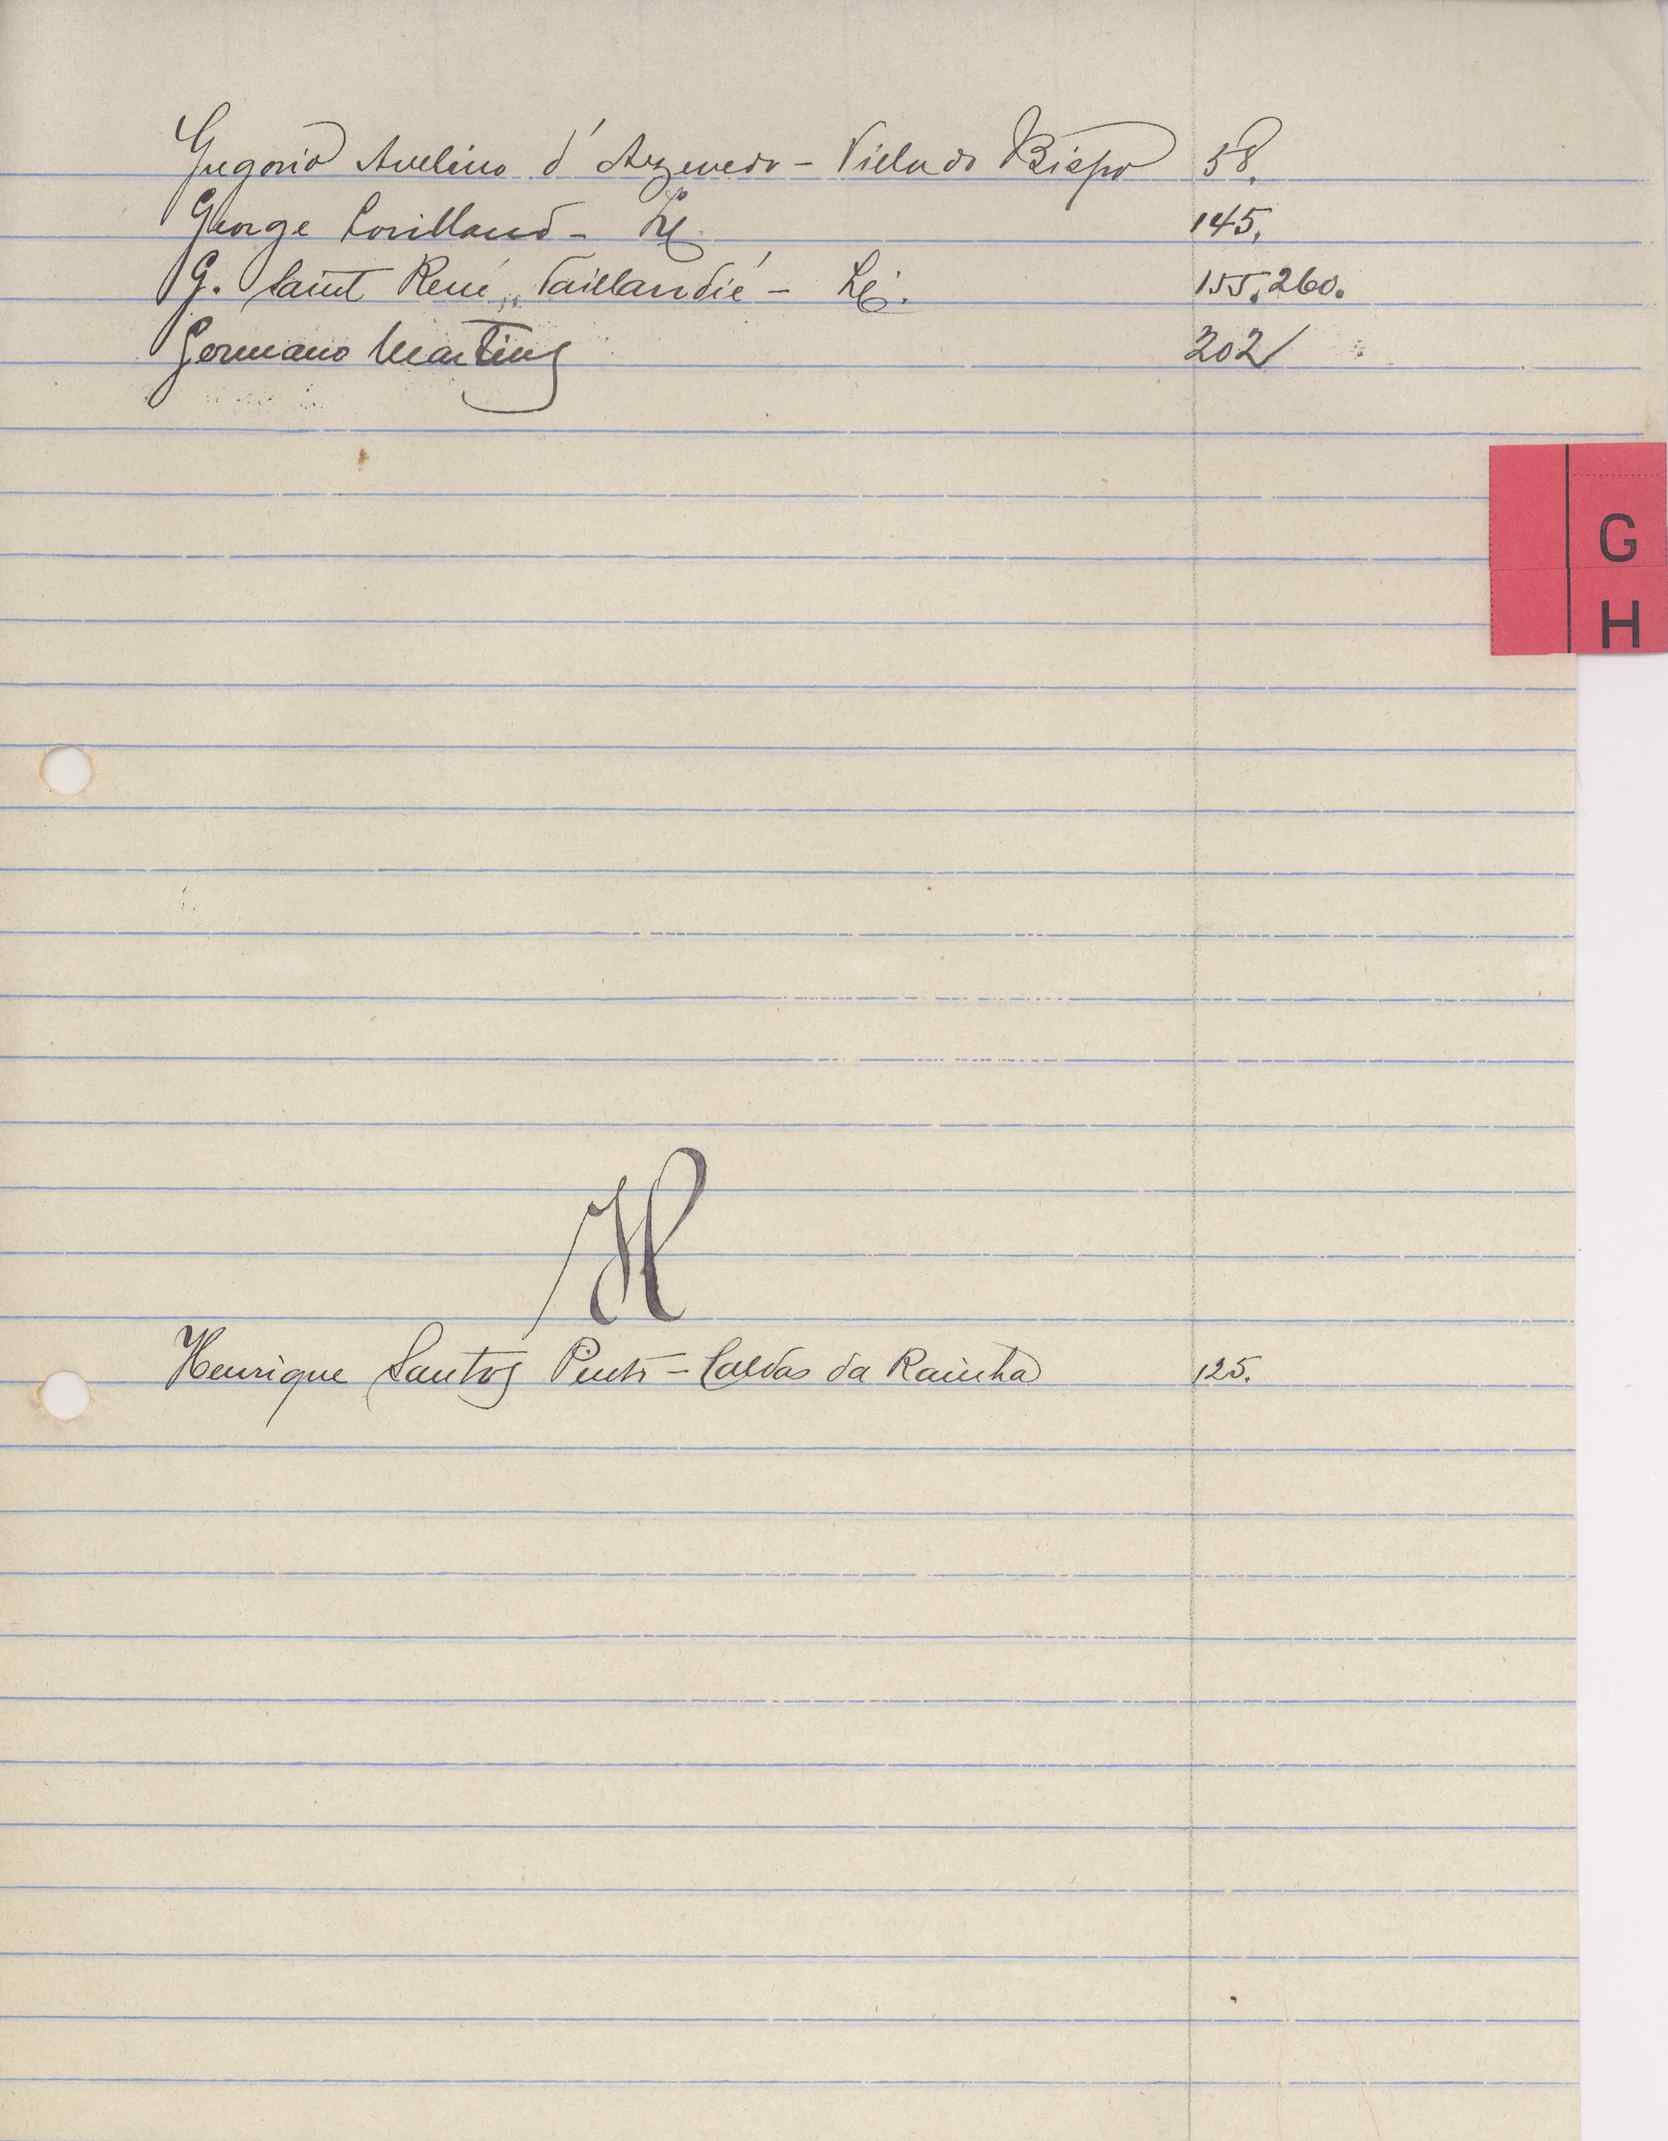 Gregorio Avelino d'Azevedo - Villa do Bispo 58.
George Lorilland - Lx. 145.
G. Saint René Taillandié - Lx. 155. 260.
Germano Martins 202
G
H
H
Henrique Santos Pinto - Caldas da Rainha 125.